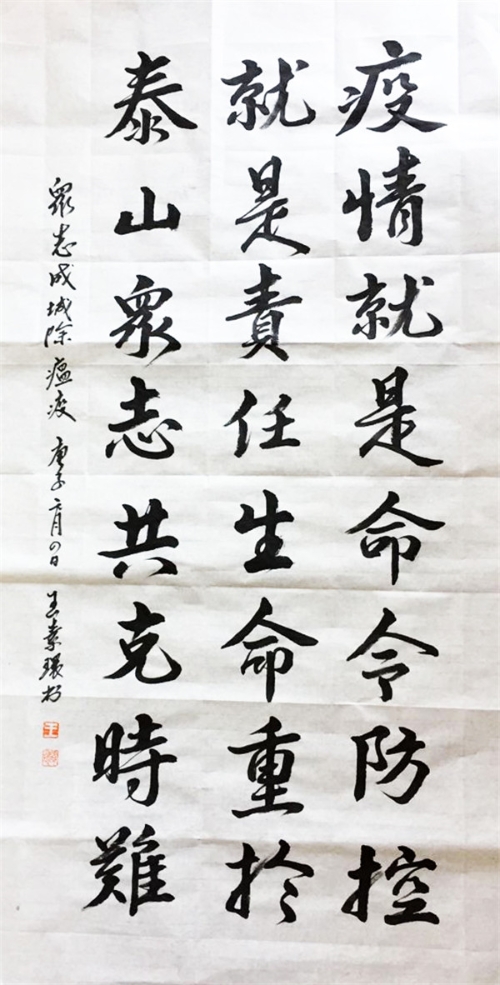 疫情就是命令防控
就是責任生命重於
泰山眾志共克時難
眾志成城除瘟疫 庚子二月四日 王素環書
王